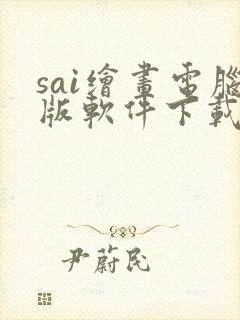 sai繪畫電腦
版軟件下載
尹蔚民